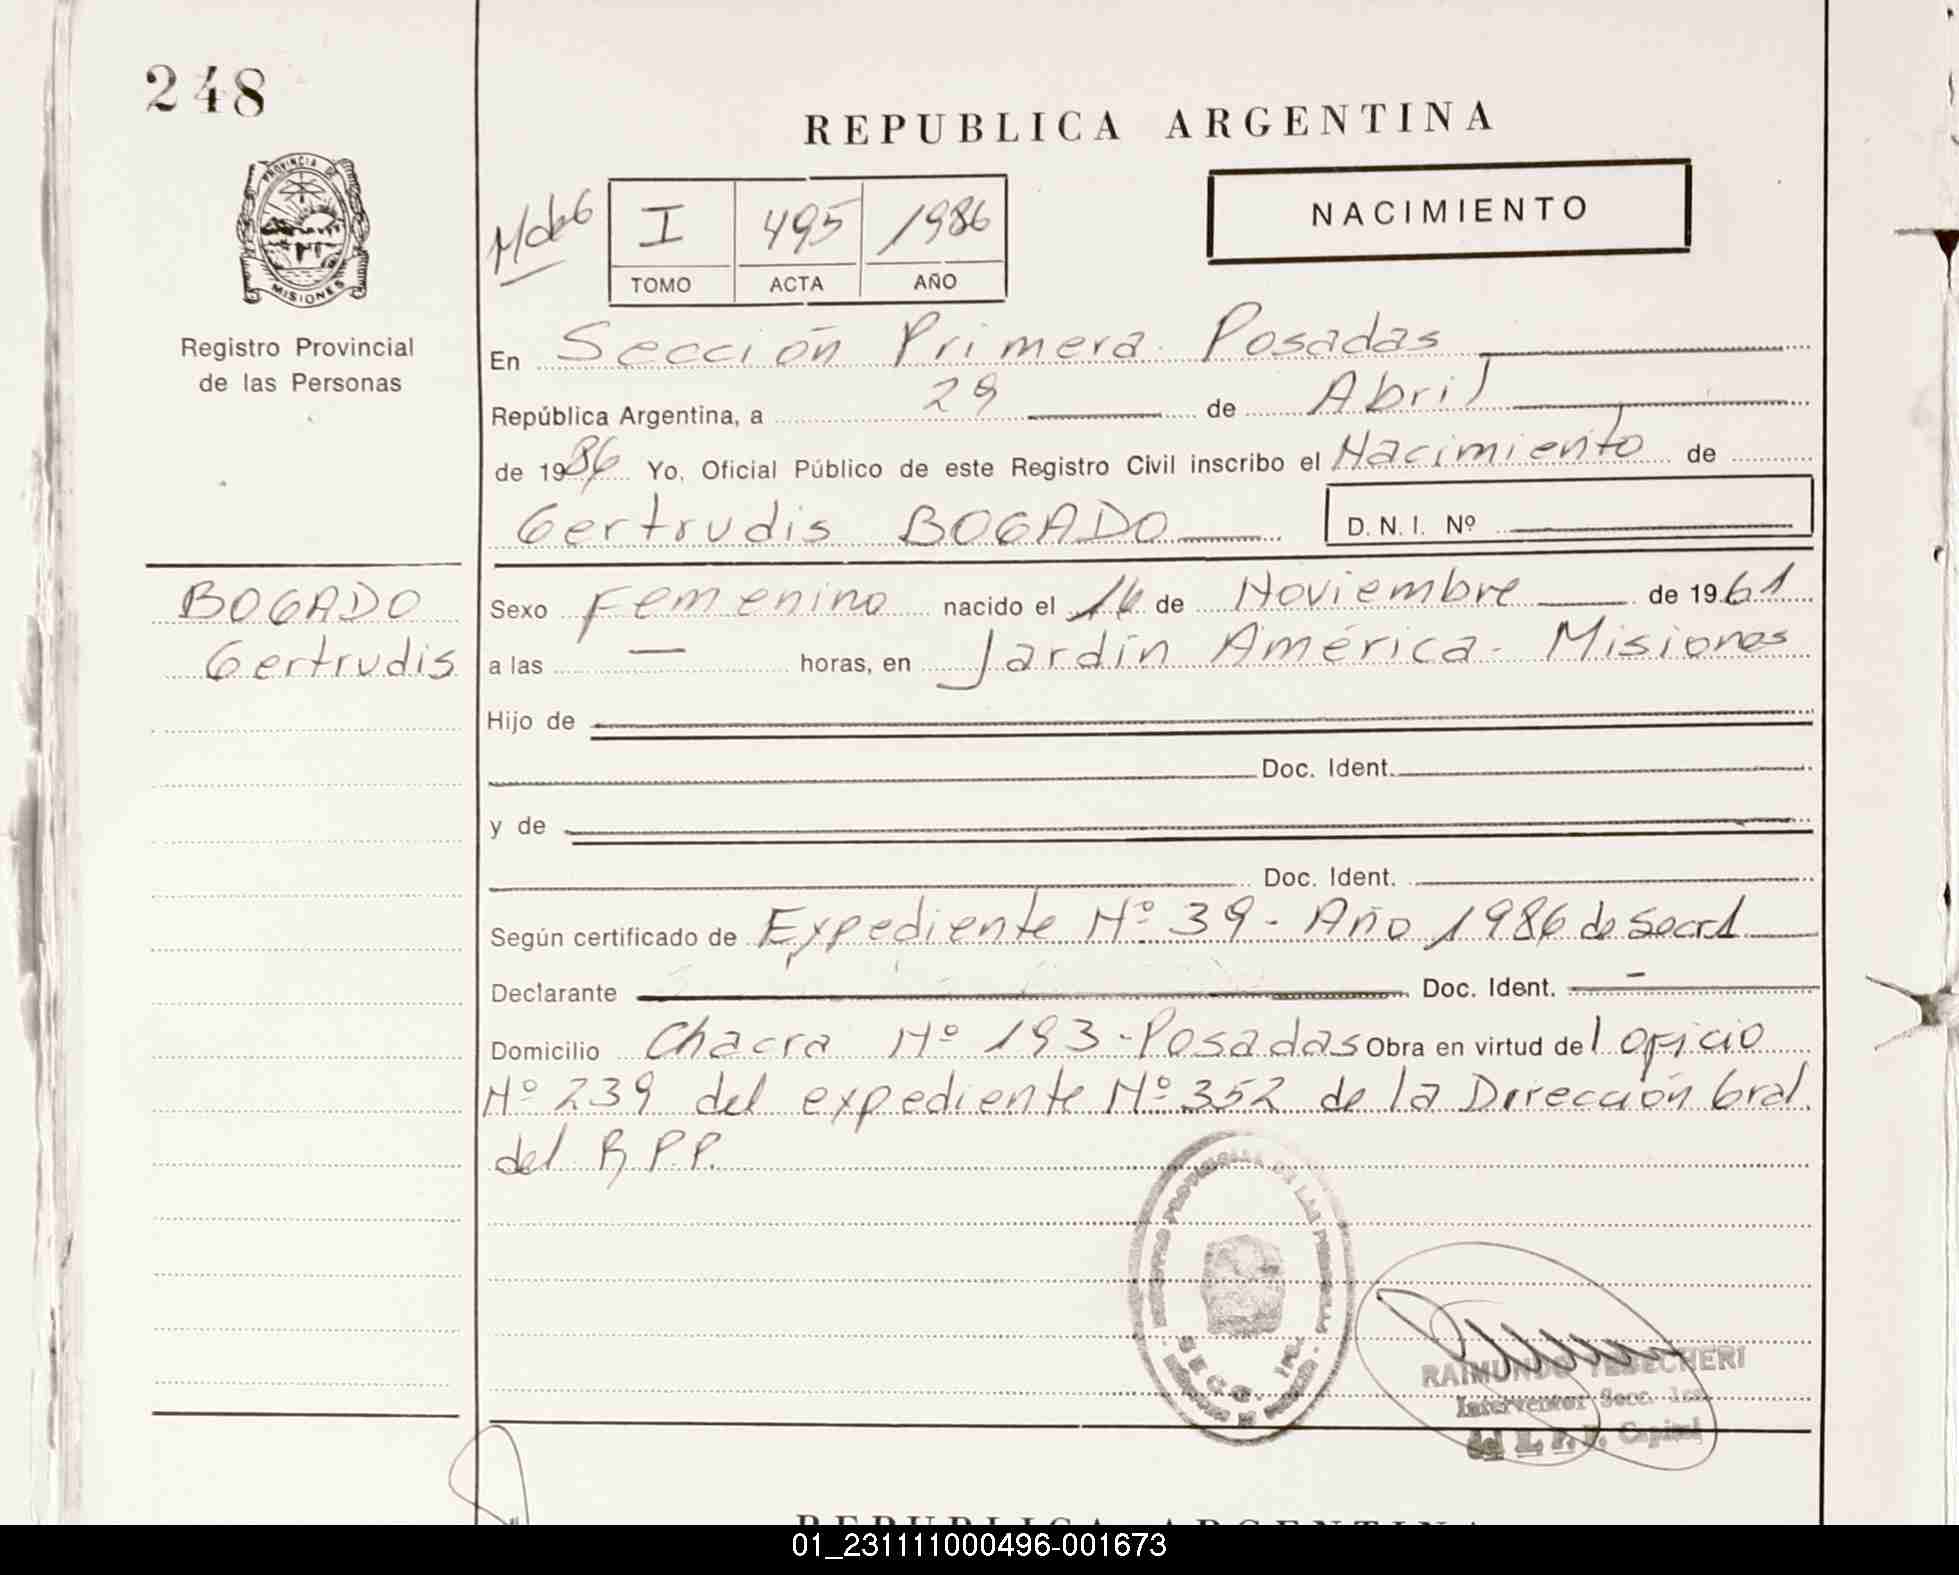 248
REPUBLICA ARGENTINA
NACIMIENTO
I 495 1986
TOMO ACTA AÑO
PROVINCIA DE
MISIONES
Registro Provincial
de las Personas
En Sección Primera Posadas
República Argentina, a 29 de Abril
de 1986 Yo, Oficial Público de este Registro Civil inscribo el Nacimiento de
Gertrudis BOGADO D.N.I. Nº
BOGADO
Gertrudis
Sexo Femenino nacido el 16 de Noviembre de 1961
a las — horas, en Jardín América - Misiones
Hijo de
Doc. Ident.
y de
Doc. Ident.
Según certificado de Expediente Nº 39 - Año 1986 de Secc 1
Declarante Doc. Ident. -
Domicilio Chacra Nº 193 - Posadas Obra en virtud del oficio
Nº 239 del expediente Nº 352 de la Dirección Gral.
del R.P.P.
REGISTRO PROVINCIAL DE LAS PERSONAS
SECC. 1ra.
RAIMUNDO
Interventor Secc. 1ra
del R. P. P. Capital
REPUBLICA ARGENTINA
01_231111000496-001673